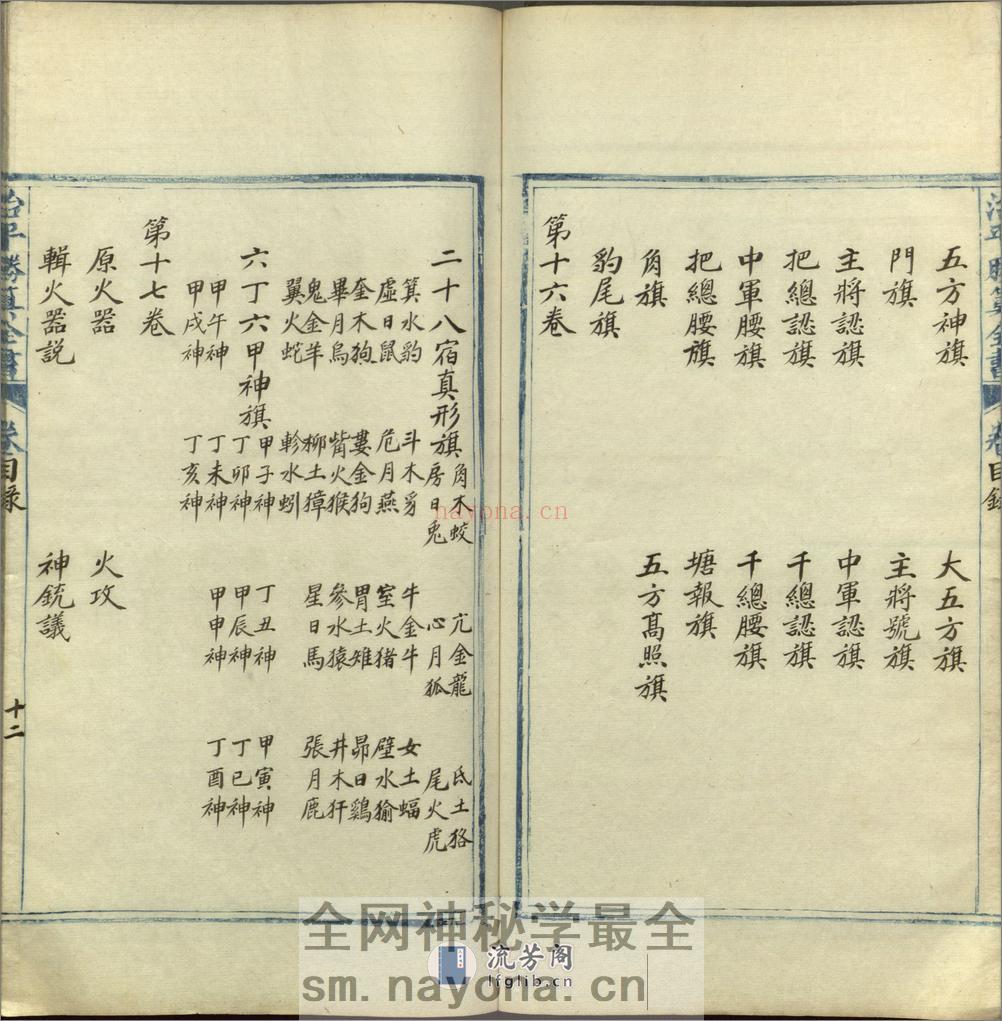 治平勝算全書 卷 目錄
五方神旗 大五方旗
門旗 主將號旗
主將認旗 中軍認旗
把總認旗 千總認旗
中軍腰旗 千總腰旗
把總腰旗 塘報旗
角旗 五方高照旗
豹尾旗
第十六卷
二十八宿真形旗 角木蛟 亢金龍 氐土狢
房日兔 心月狐 尾火虎
箕水豹 斗木豸 牛金牛 女土蝠
虛日鼠 危月燕 室火猪 壁水㺄
奎木狼 婁金狗 胃土雉 昴日鷄
畢月烏 觜火猴 參水猿 井木犴
鬼金羊 柳土獐 星日馬 張月鹿
翼火蛇 軫水蚓
六丁六甲神旗 甲子神 丁丑神 甲寅神
丁卯神 甲辰神 丁巳神
甲午神 丁未神 甲申神 丁酉神
甲戌神 丁亥神
第十七卷
原火器 火攻
輯火器説 神銃議
治平勝算全書 卷 目錄 十二
nayona.cn
全网神秘学最全
流芳阁
lfglib.cn
sm.nayona.cn